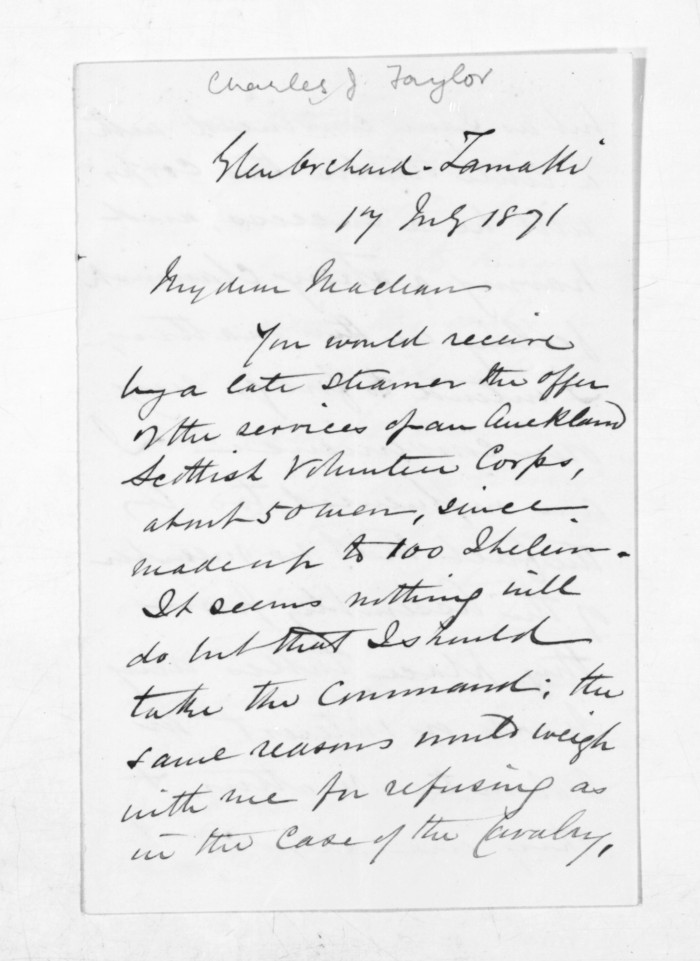 Charles J Taylor
Glenorchard - Tamaki
17 July 1871
My dear Maclean
You would receive
by a late steamer the offer
of the services of an Auckland
Scottish Volunteer Corps,
about 50 men, since
made up to 100 I believe.
It seems nothing will
do but that I should
take the Command; the
same reasons would weigh
with me for refusing as
in the case of the Cavalry,